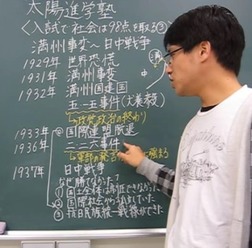 太陽進学塾
<入試で社会は98点を取る③>
満州事変〜日中戦争
1929年 世界恐慌
1931年 満州事変
1932年 満州国建国
五・一五事件(犬養毅)
→政党政治の終わり
1933年 国際連盟脱退
1936年 二・二六事件
→軍部の発言
1937年 日中戦争
なぜ勝てない?
①国土
②国際社会
③抗日民族統一戦線ができた